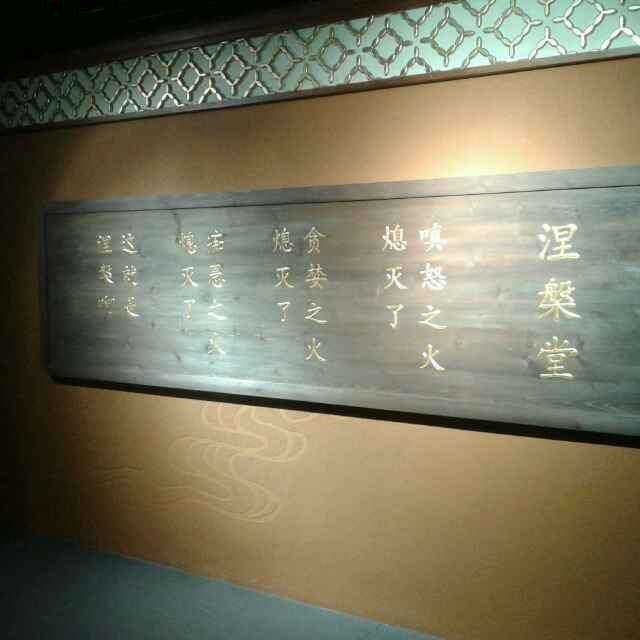 涅槃堂
嗔怒之火
熄灭了
贪婪之火
熄灭了
熄灭了
这就是
涅槃